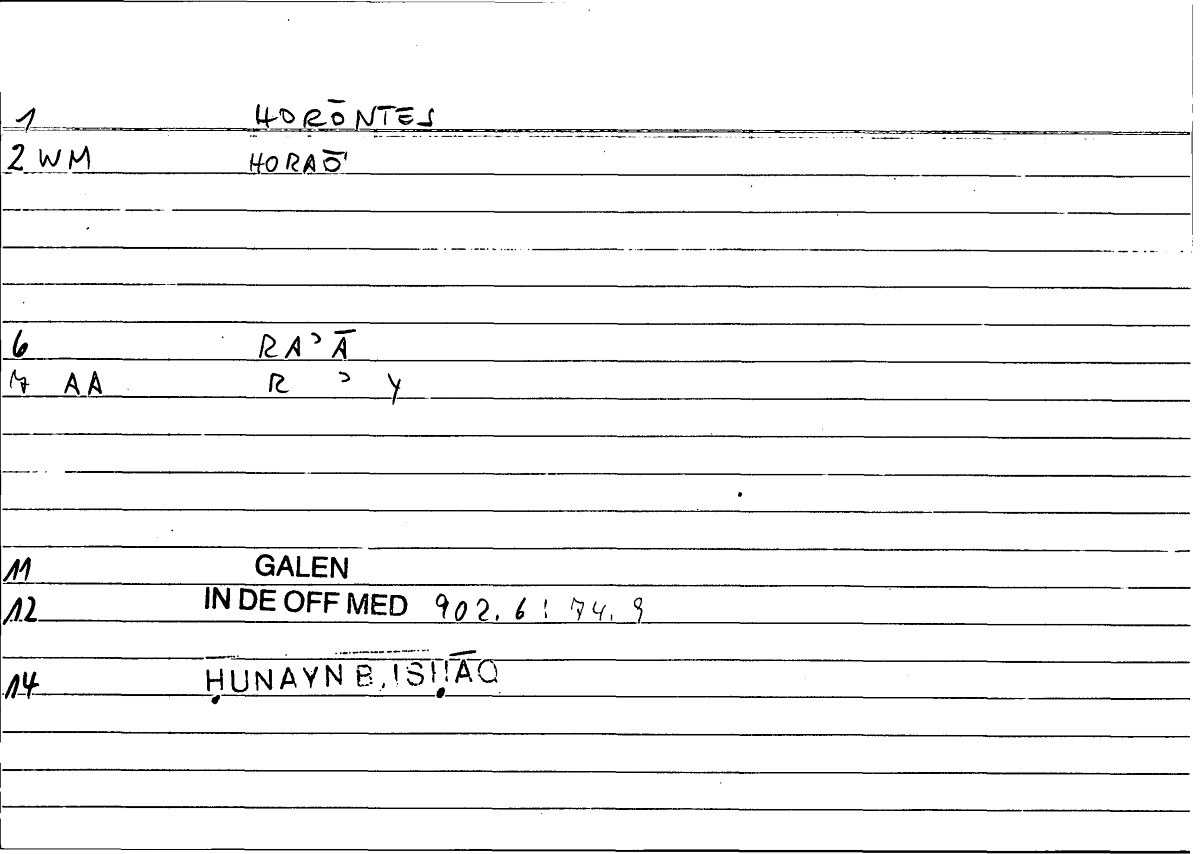 1 HORŌNTES
2 WM HORAŌ
6 RAʾĀ
7 AA R ʾ Y
11 GALEN
12 IN DE OFF MED 902.6 : 74.9
14 ḤUNAYN B. ISḤĀQ